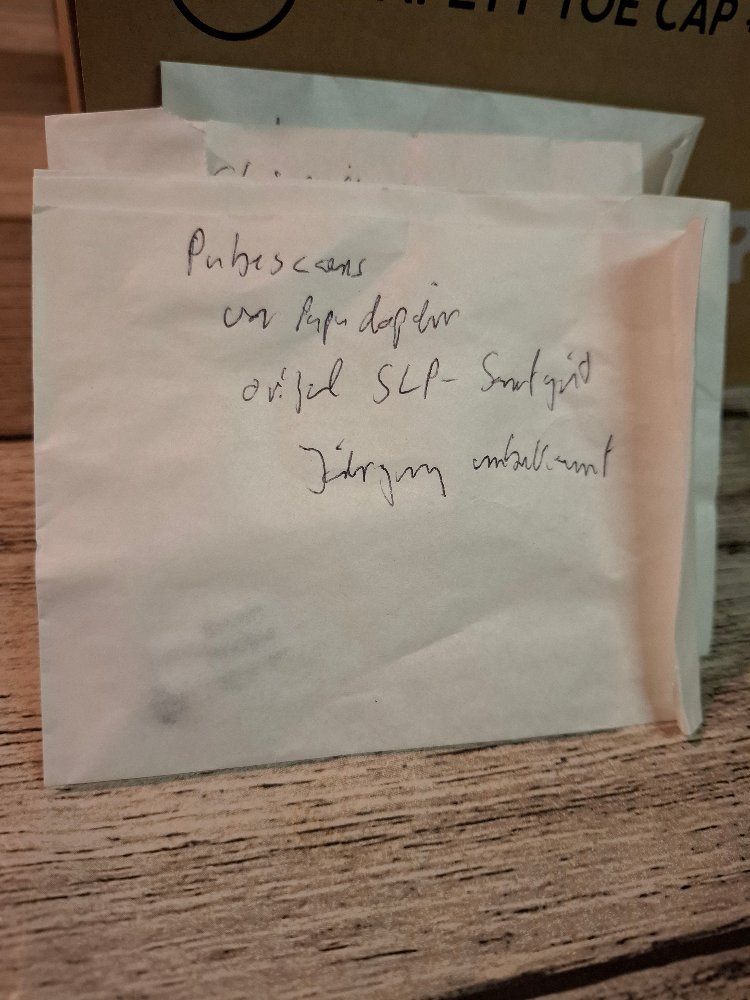 SAFETY TOE CAP
Pubescens
von Papa dopdin
original SLP- Saatgut
Jahrgang unbekannt